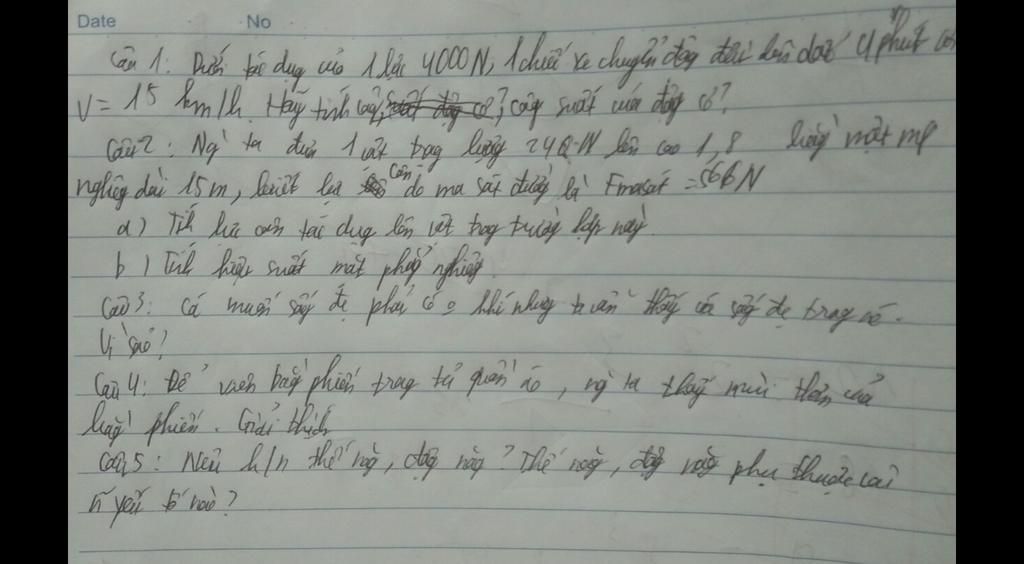 Date No
Câu 1: Dưới tác dụng của 1 lực 4000 N, 1 chiếc xe chuyển động đều lên dốc 4 phút
V = 15 km/h. Hãy tính công, công suất của động cơ?
Câu 2: Ng ta đưa 1 vật trọng lượng N lên cao 1,8 bằng mặt mp
nghiêng dài 15 m, biết lực cản do ma sát đường là Fmasát = N
a) Tính lực cản tác dụng lên vật trong trường hợp này.
b) Tính hiệu suất mặt phẳng nghiêng.
Câu 3: Cá muốn sống đc phải có o khí nhưng ta vẫn thấy cá sống đc trong nó.
Vì sao?
Câu 4: Để viên băng phiến trong tủ quần áo, ng ta thấy mùi thơm của
băng phiến. Giải thích
Câu 5: Nêu k/n thế năng, động năng? Thế năng, động năng phụ thuộc vào
n yếu tố nào?